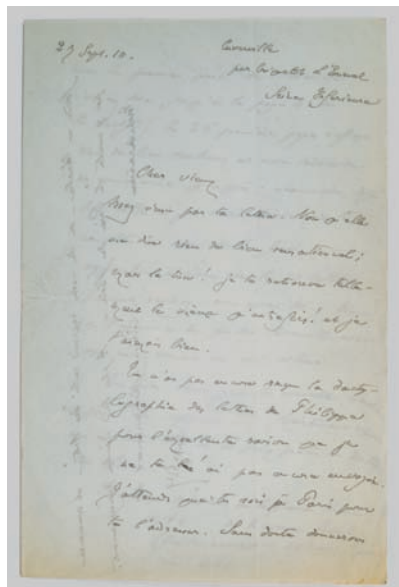 29 Sept. 10.
Cuverville
par Criquetot l'Esneval
Seine Inférieure
Cher vieux
ému par ta lettre. Non qu'elle
me dise rien de bien
mais le ton! je te retrouve tel
que le vieux et je
bien.
Tu n'as pas encore reçu la dacty-
lographie des lettres de Philippe
pour l'excellente raison que je
ne te l'ai pas encore envoyée.
J'attends que tu sois à Paris pour
te l'adresser. Sans doute donnerons